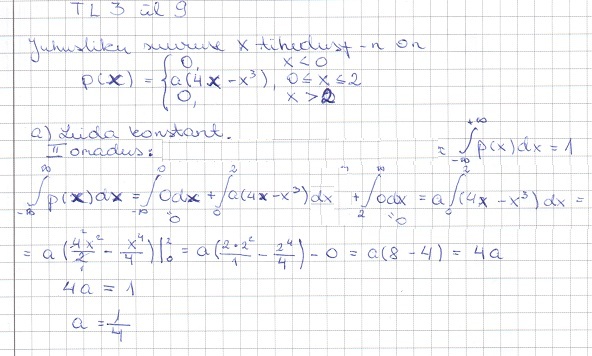 TL 3 ül 9
Juhusliku suuruse X tihedusf-n on
p(x) = { 0, x < 0
a(4x - x³), 0 ≤ x ≤ 2
0, x > 2
a) Leida konstant.
II omadus: = ∫_{-∞}^{+∞} p(x)dx = 1
∫_{-∞}^{∞} p(x)dx = ∫_{-∞}^{0} 0dx + ∫_{0}^{2} a(4x-x³)dx + ∫_{2}^{∞} 0dx = a ∫_{0}^{2} (4x - x³)dx =
"0 "0
= a (4x²/2 - x⁴/4) |₀² = a(2·2²/1 - 2⁴/4) - 0 = a(8-4) = 4a
4a = 1
a = 1/4